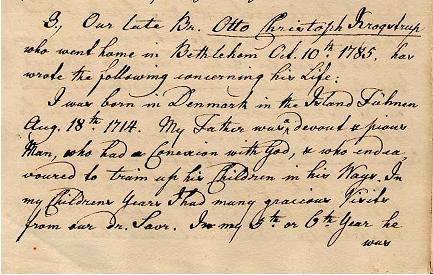 3., Our late Br. Otto Christoph Krogstrup
who went home in Bethlehem Oct. 10th 1785, has
wrote the following concerning his Life:
I was born in Denmark in the Island Fühnen
Aug. 18th 1714. My Father was a devout & pious
Man, who had a Conexion with God, & who endea
voured to train up his Children in his Ways. In
my Childrens Years I had many gracious Visits
from our dr. Savr. In my 5th or 6th Year he
was